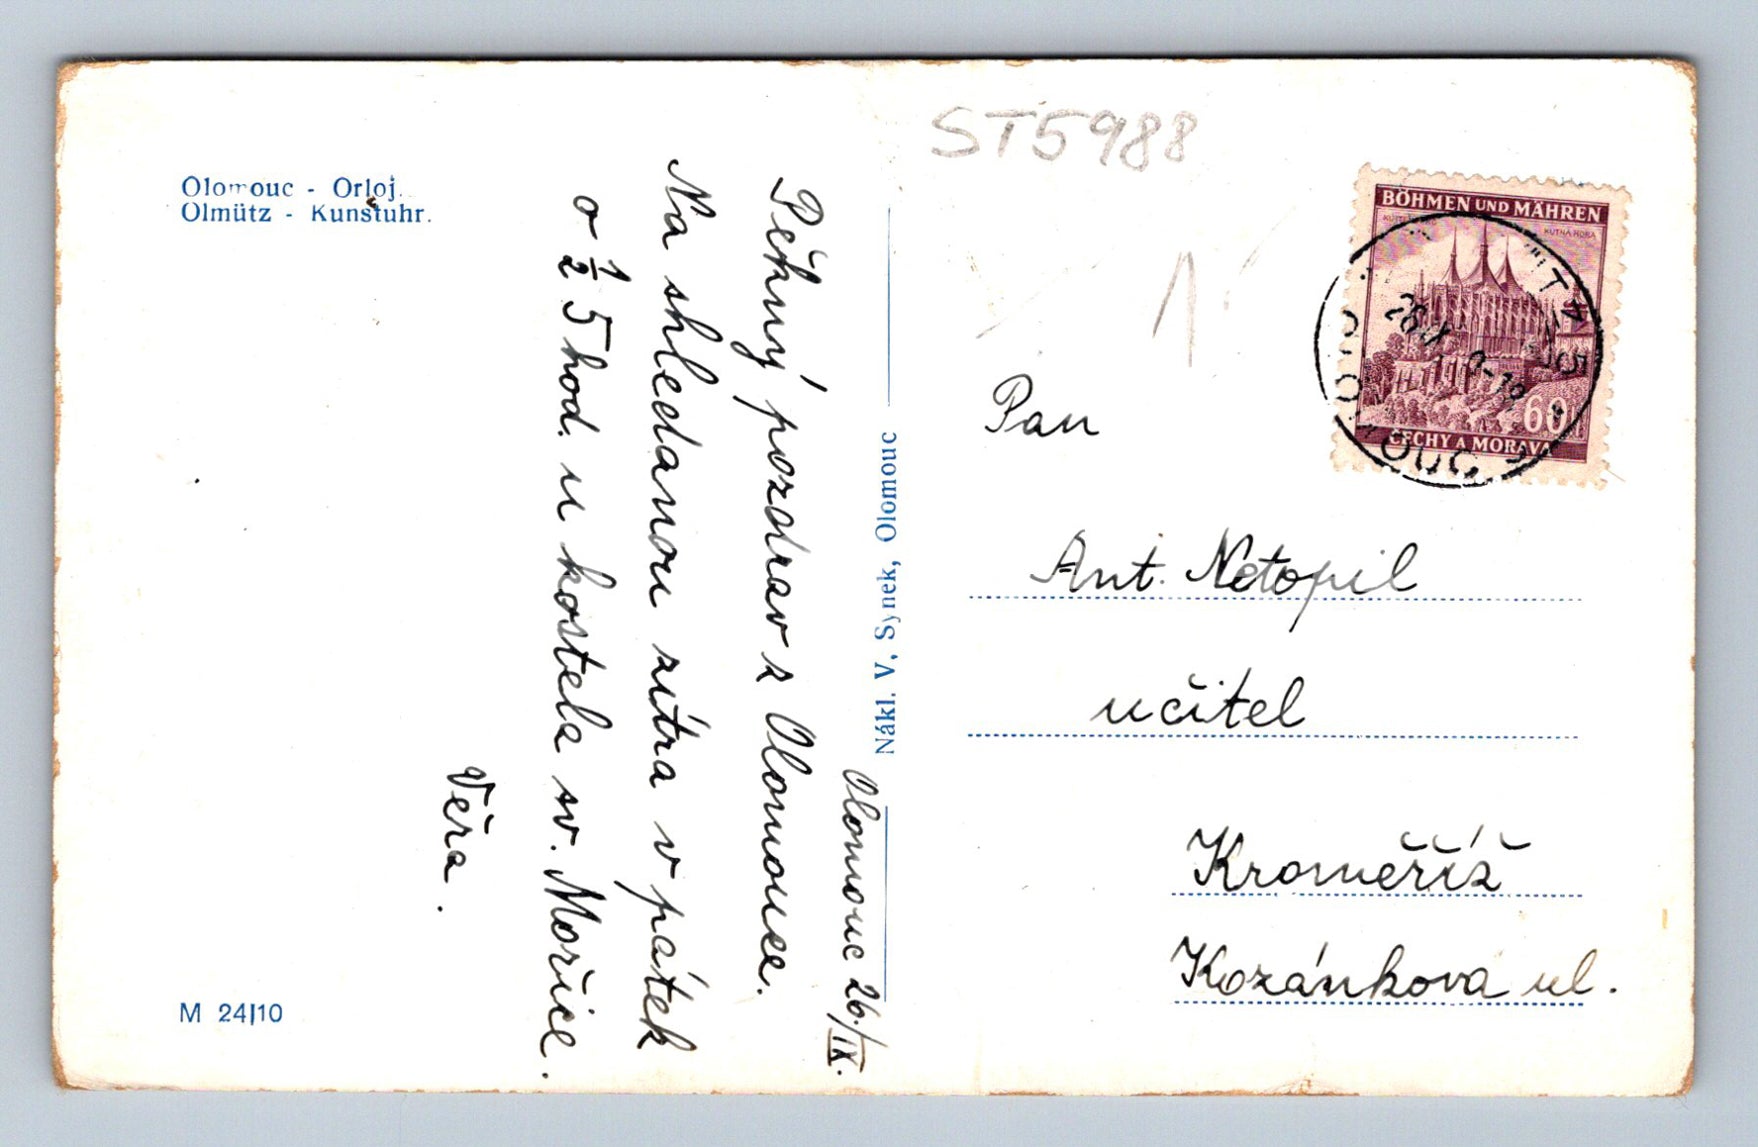 ST5988
Olomouc - Orloj.
Olmütz - Kunstuhr.
Olomouc 26./IX.
Pěkný pozdrav z Olomouce.
Na shledanou zítra v pátek
o ½ 5 hod. u kostela sv. Mořice.
Věra.
M 24/10
Nákl. V. Synek, Olomouc
BÖHMEN UND MÄHREN
KUTNÁ HORA
60
ČECHY A MORAVA
OLOMOUC 2
Pan
Ant. Netopil
učitel
Kroměříž
Kozánkova ul.